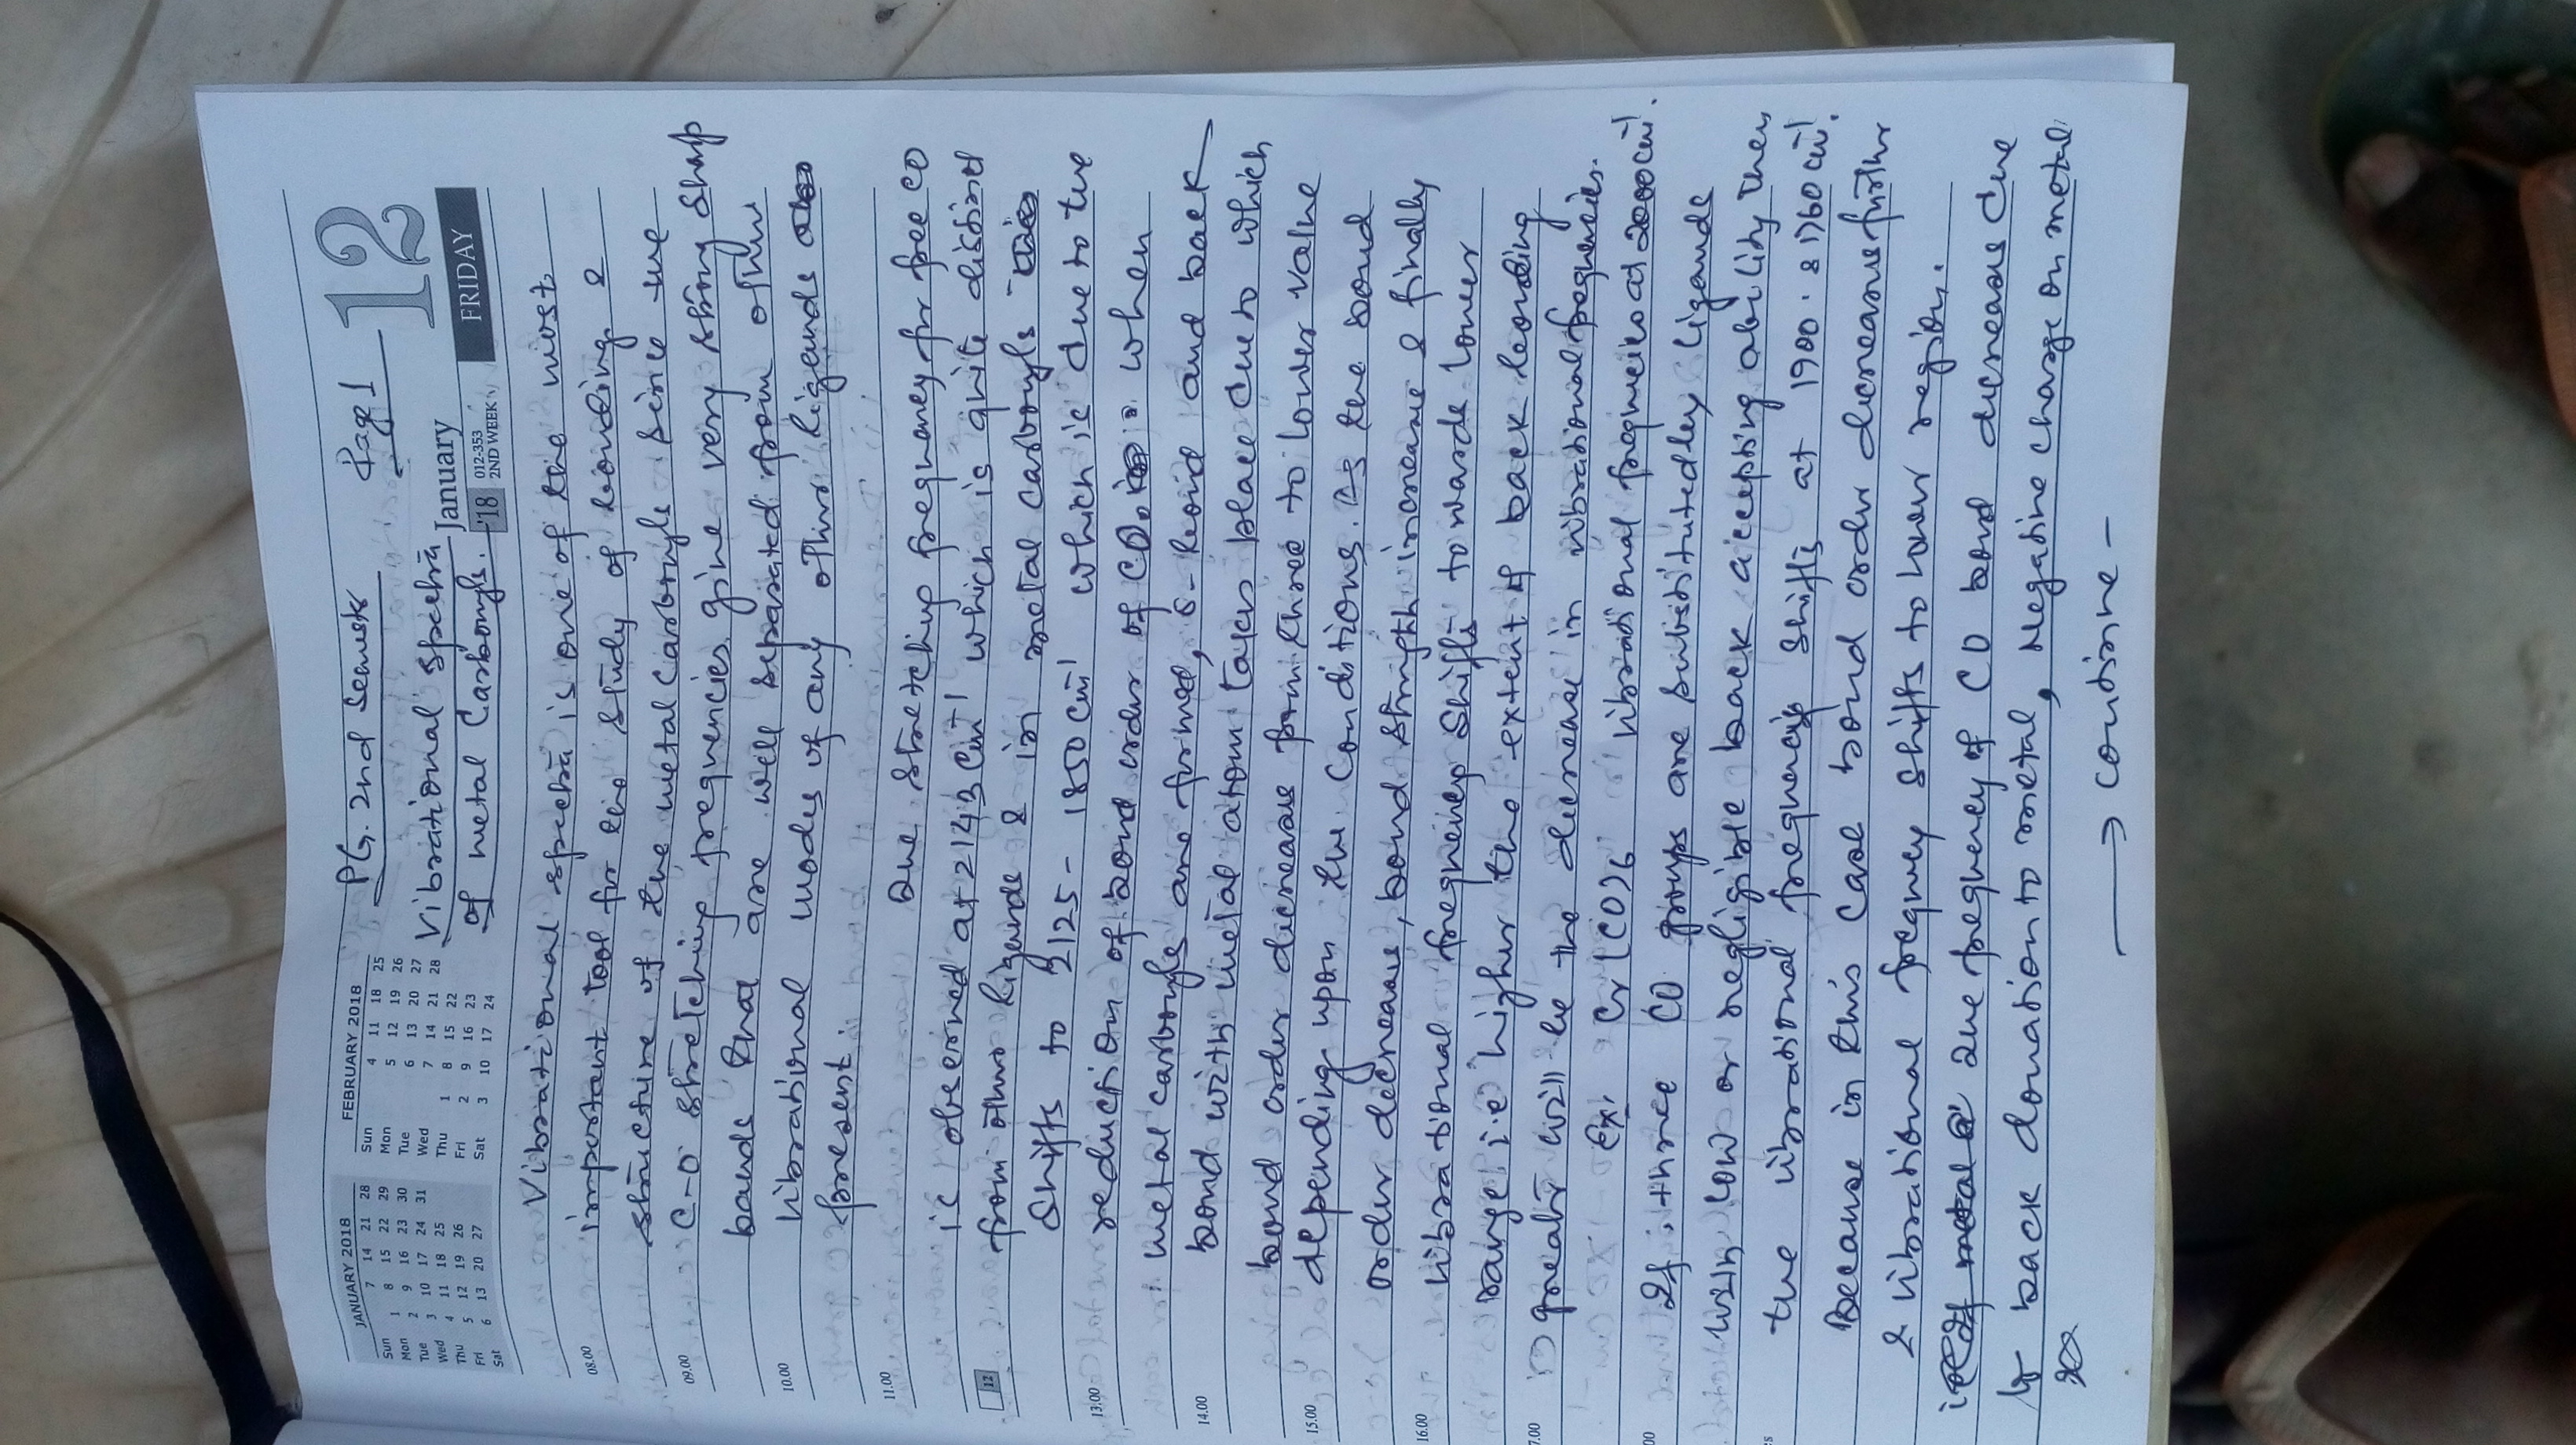 JANUARY 2018
Sun 7 14 21 28
Mon 1 8 15 22 29
Tue 2 9 16 23 30
Wed 3 10 17 24 31
Thu 4 11 18 25
Fri 5 12 19 26
Sat 6 13 20 27
FEBRUARY 2018
Sun 4 11 18 25
Mon 5 12 19 26
Tue 6 13 20 27
Wed 7 14 21 28
Thu 1 8 15 22
Fri 2 9 16 23
Sat 3 10 17 24
PG. 2nd Semester
Page 1
Vibrational Spectra
of metal Carbonyls.
January
'18 012-353
2ND WEEK
12
FRIDAY
Vibrational spectra is one of the most
08.00 important tool for the study of bonding &
structure of the metal carbonyls since the
09.00 C-O stretching frequencies give very strong sharp
bands that are well separated from other
10.00 vibrational modes of any other ligands
present.
11.00 The stretching frequency for free CO
is observed at 2143 cm-1 which is quite distinct
12 from other ligands & in metal carbonyls
shifts to 2125 - 1850 cm-1 which is due to the
13.00 reduction of bond order of CO. when
metal carbonyls are formed, σ-bond and back
14.00 bond with metal atom takes place due to which
bond order decrease from three to lower value
15.00 depending upon the conditions. As the bond
order decrease, bond strength increase & finally
16.00 vibrational frequency shifts towards lower
range i.e higher the extent of back bonding
greater will be the decrease in vibrational frequencies.
Ex. Cr(CO)6 vibrational frequencies at 2000 cm-1.
If, three CO groups are substituted by ligands
with low or negligible back accepting ability then
the vibrational frequency shifts at 1900 & 1760 cm-1.
Because in this case bond order decrease further
& vibrational frequency shifts to lower region.
The frequency of CO bond decreases due
to back donation to metal, Negative charge on metal
→ continue -